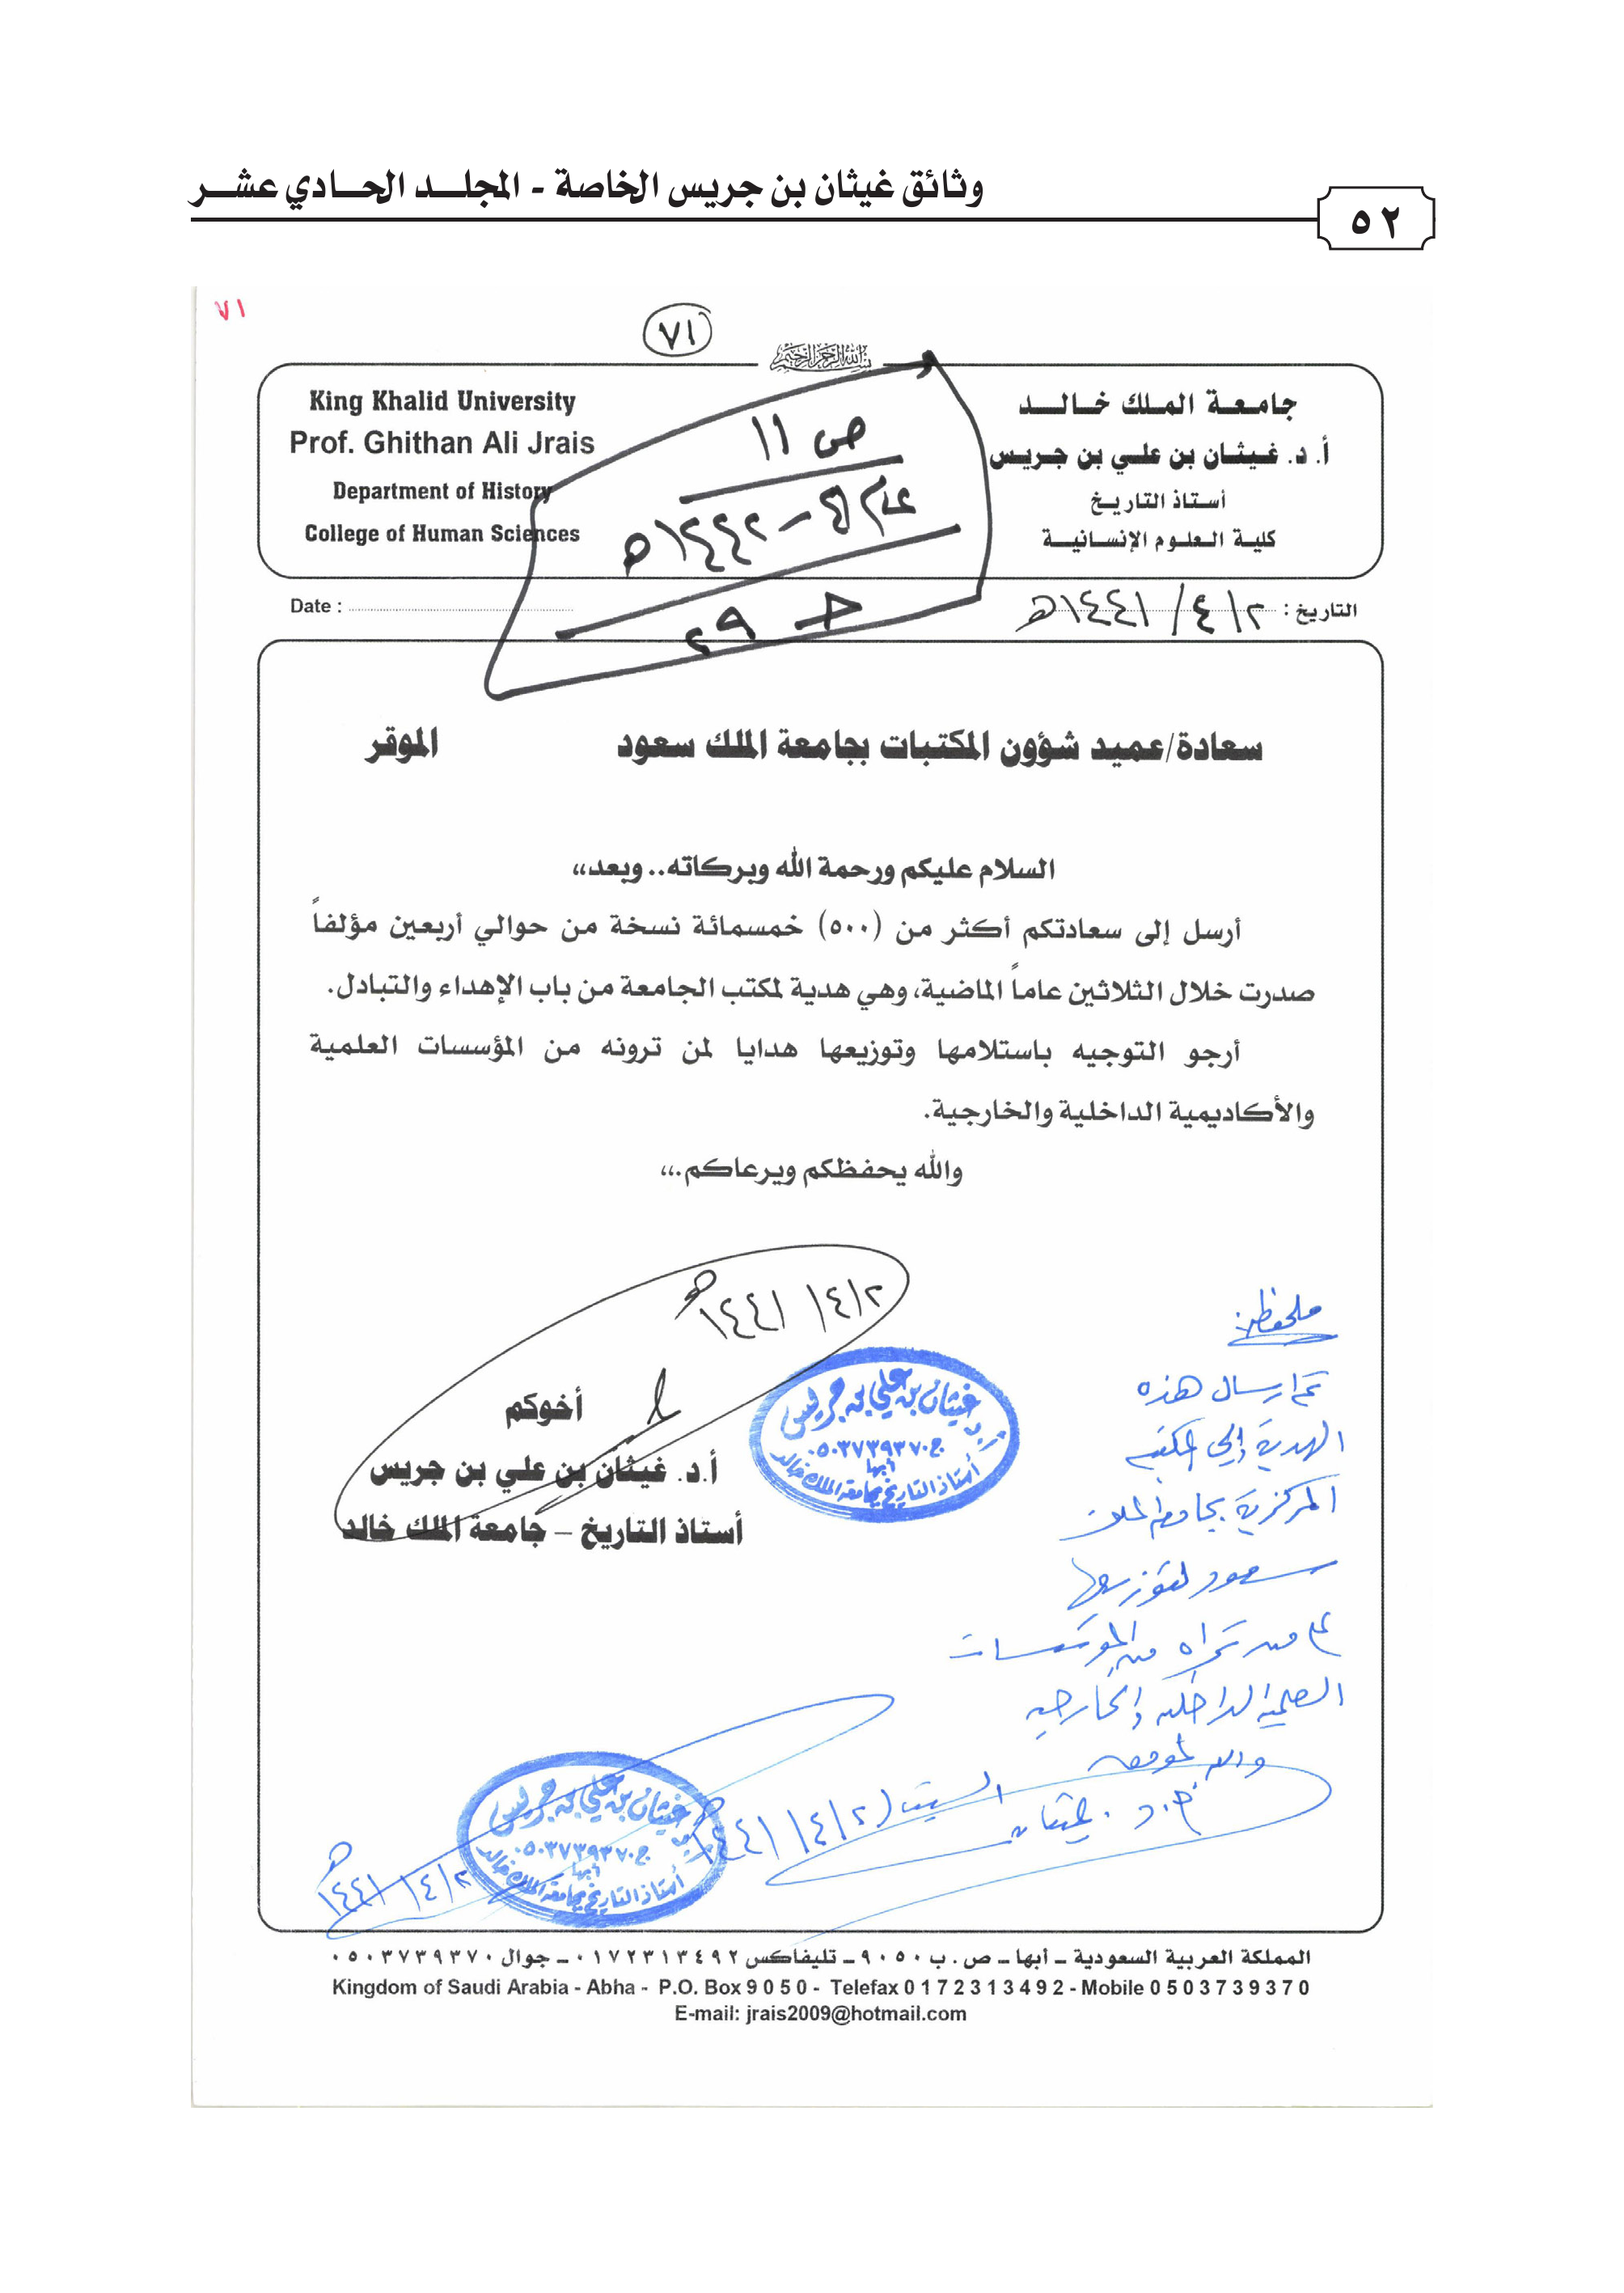 وثائق غيثان بن جريس الخاصة - المجلد الحادي عشر
٥٢
٧١
٧١
بسم الله الرحمن الرحيم
جامعة الملك خالد
أ. د. غيثان بن علي بن جريس
أستاذ التاريخ
كلية العلوم الإنسانية
King Khalid University
Prof. Ghithan Ali Jrais
Department of History
College of Human Sciences
ص ١١
١٤٤٢هـ
٢٩
التاريخ : ٢/٤/١٤٤١هـ
Date :
سعادة/عميد شؤون المكتبات بجامعة الملك سعود الموقر
السلام عليكم ورحمة الله وبركاته.. وبعد،،
أرسل إلى سعادتكم أكثر من (٥٠٠) خمسمائة نسخة من حوالي أربعين مؤلفاً
صدرت خلال الثلاثين عاماً الماضية، وهي هدية لمكتب الجامعة من باب الإهداء والتبادل.
أرجو التوجيه باستلامها وتوزيعها هدايا لمن ترونه من المؤسسات العلمية
والأكاديمية الداخلية والخارجية.
والله يحفظكم ويرعاكم،،،
٢/٤/١٤٤١هـ
أخوكم
أ.د. غيثان بن علي بن جريس
أستاذ التاريخ – جامعة الملك خالد
أ.د غيثان بن علي بن جريس
ج.٠٥٠٣٧٣٩٣٧٠
أبها
أستاذ التاريخ بجامعة الملك خالد
ملحوظة:
تم ارسال هذه
الهدية إلى المكتبة
المركزية بجامعة الملك
سعود لتوزيعها
على من تراه من المؤسسات
العلمية الداخلية والخارجية
والله الموفق
أ.د. غيثان
السبت (٢/٤/١٤٤١هـ
أ.د غيثان بن علي بن جريس
ج.٠٥٠٣٧٣٩٣٧٠
أبها
أستاذ التاريخ بجامعة الملك خالد
٢/٤/١٤٤١هـ
المملكة العربية السعودية – أبها – ص . ب ٩٠٥٠ – تليفاكس ٠١٧٢٣١٣٤٩٢ – جوال ٠٥٠٣٧٣٩٣٧٠
Kingdom of Saudi Arabia - Abha - P.O. Box 9 0 5 0 - Telefax 0 1 7 2 3 1 3 4 9 2 - Mobile 0 5 0 3 7 3 9 3 7 0
E-mail: jrais2009@hotmail.com